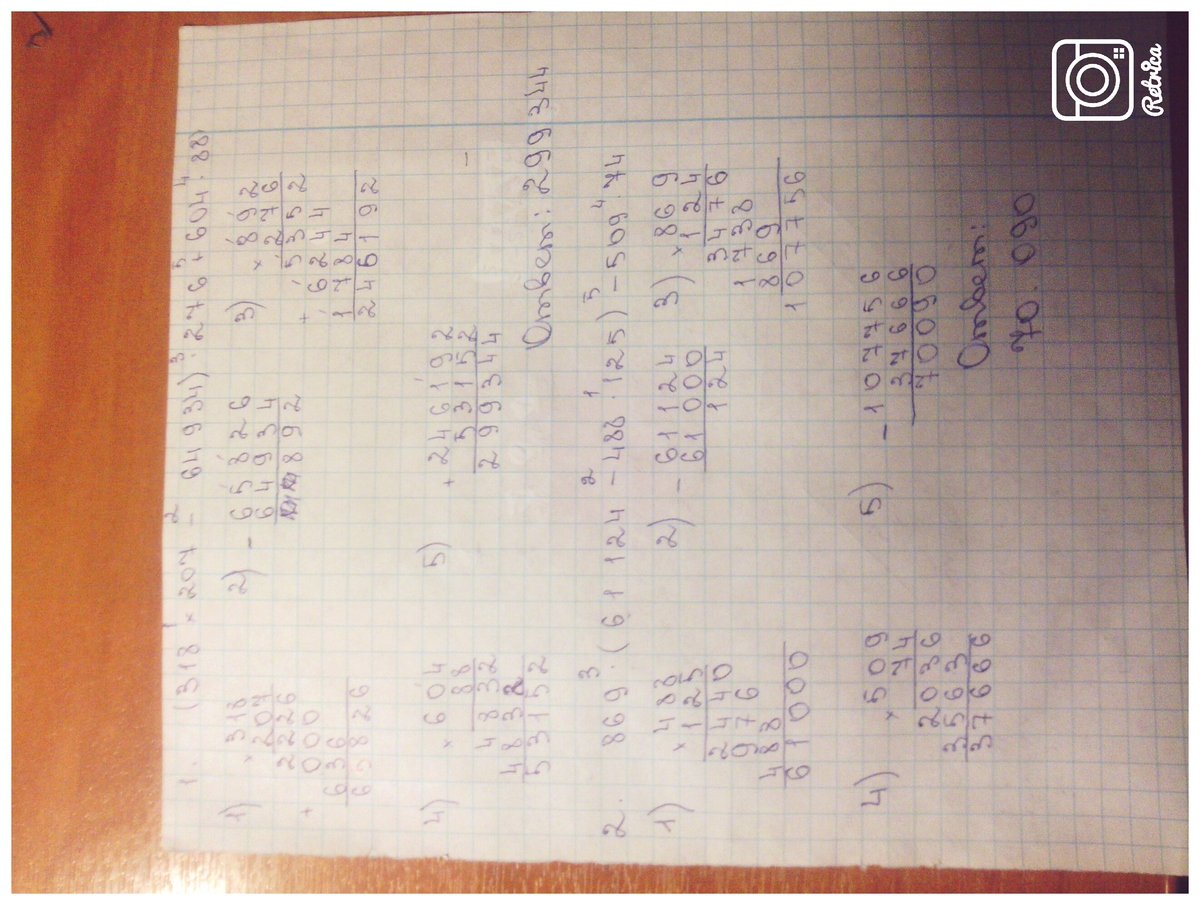 1. (318 × 207 - 64934) · 276 + 604 · 88
1)
× 318
207
2226
+ 000
636
65826
2)
- 65826
64934
892
3)
× 892
276
5352
+ 6244
1784
246192
4)
× 604
88
4832
4832
53152
5)
+ 246192
53152
299344
Ответ: 299344
2. 869 · (61124 - 488 · 125) - 509 · 74
1)
× 488
125
2440
976
488
61000
2)
- 61124
61000
124
3)
× 869
124
3476
1738
869
107756
4)
× 509
74
2036
3563
37666
5)
- 107756
37666
70090
Ответ:
70.090
Retrica